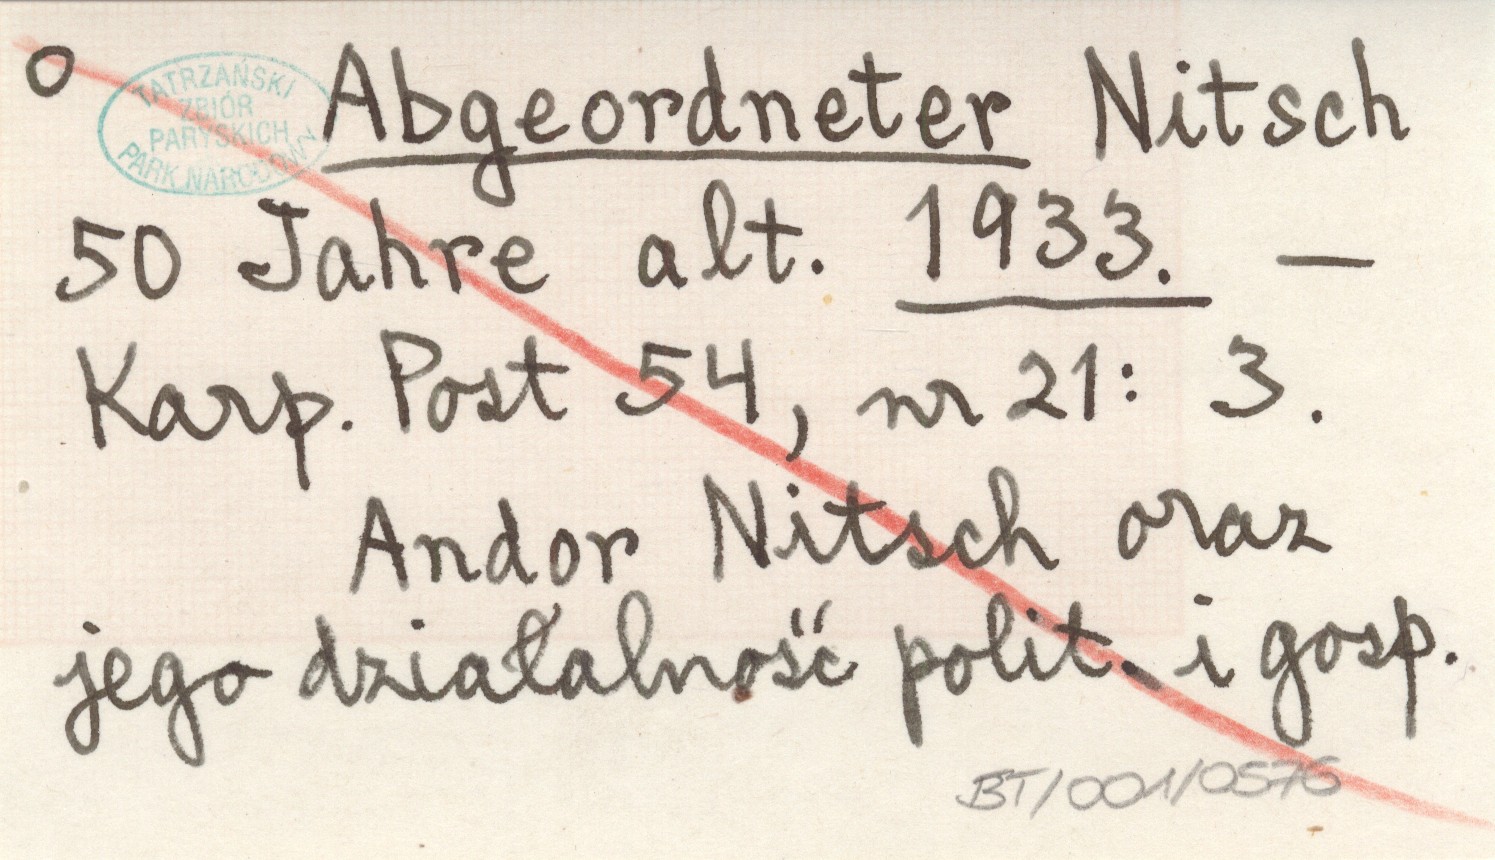 o
TATRZAŃSKI
ZBIÓR
PARYSKICH
PARK NARODOWY
Abgeordneter Nitsch
50 Jahre alt. 1933. —
Karp. Post 54, nr 21: 3.
Andor Nitsch oraz
jego działalność polit. i gosp.
BT/001/0576